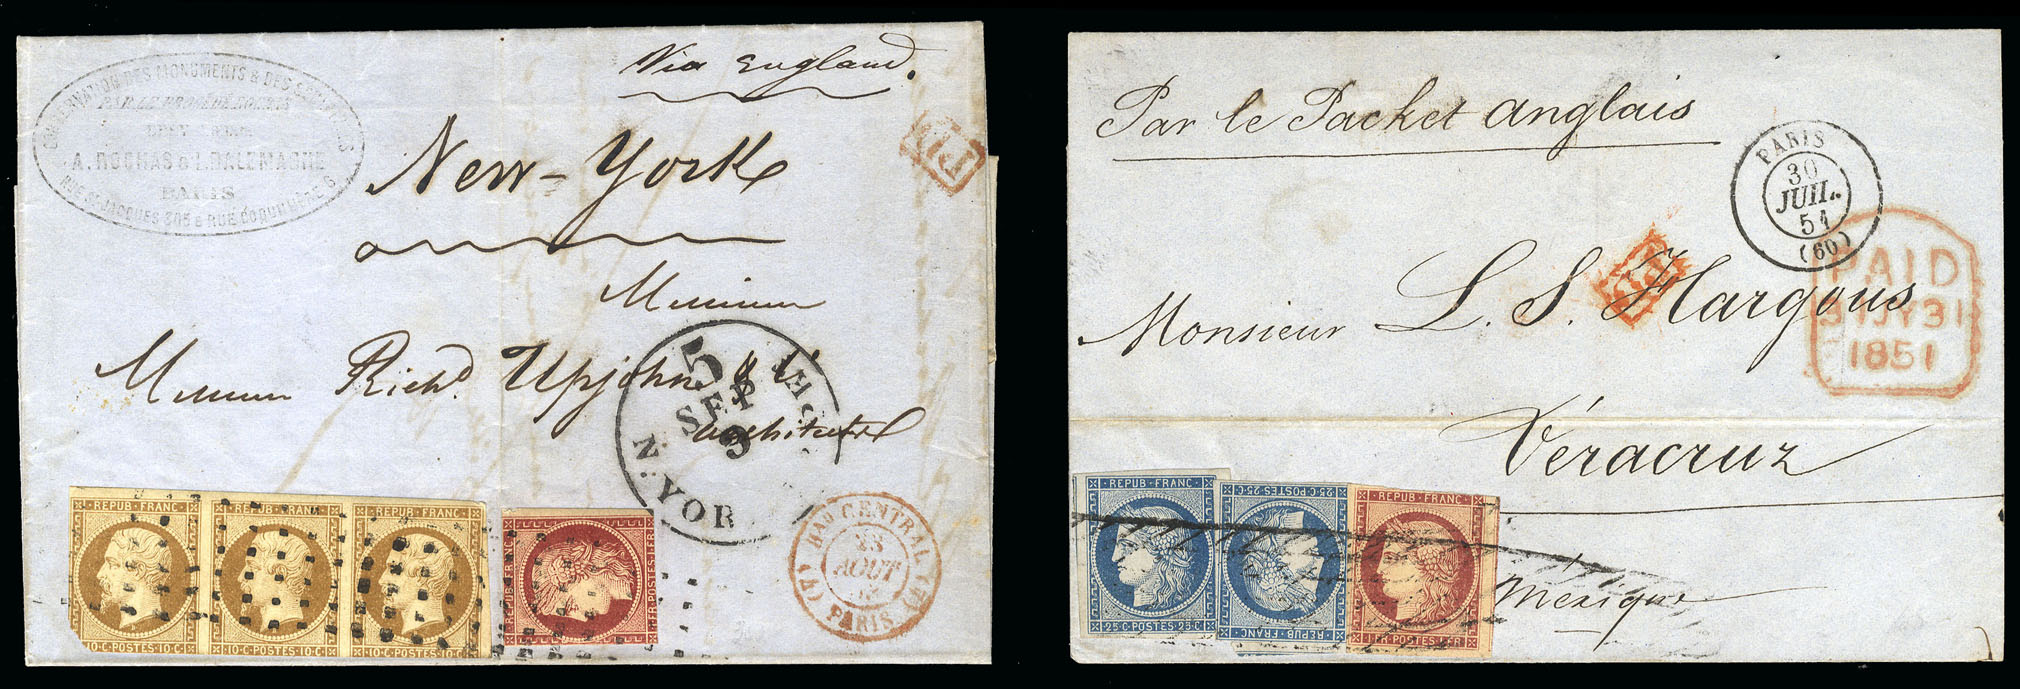 Via England.
CONSERVATION DES MONUMENTS & DES SCULPTURES
A. ROCHAS & L. DALEMAGNE
PARIS
RUE St JACQUES 305 & RUE COQUENARD 6
P.D.
New-York
Richd. Upjohn &
5
SEP
9
N. YORK
BAU CENTRAL (17)
23
AOUT
PARIS
REPUB FRANC
REPUB FRANC
REPUB FRANC
10·C·POSTES·10·C·
10·C·POSTES·10·C·
10·C·POSTES·10·C·
REPUB FRANC
1·FR·POSTES·1·FR
Par le Packet anglais
PARIS
30
JUIL.
51
(60)
PAID
31 JY 31
1851
P.D.
Monsieur L. S. Hargous
Véracruz
Mexique
REPUB·FRANC·
25·C·POSTES·25·C·
25·C·POSTES·25·C·
REPUB·FRANC·
REPUB·FRANC·
1·FR·POSTES·1·FR